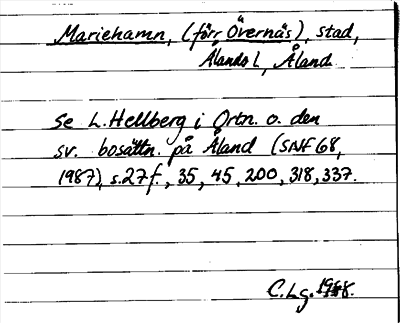 Mariehamn, (förr Övernäs), stad,
Ålands l, Åland
Se L. Hellberg i Ortn. o. den
sv. bosättn. på Åland (SNF 68,
1987), s. 27 f., 35, 45, 200, 318, 337.
C. Lg.